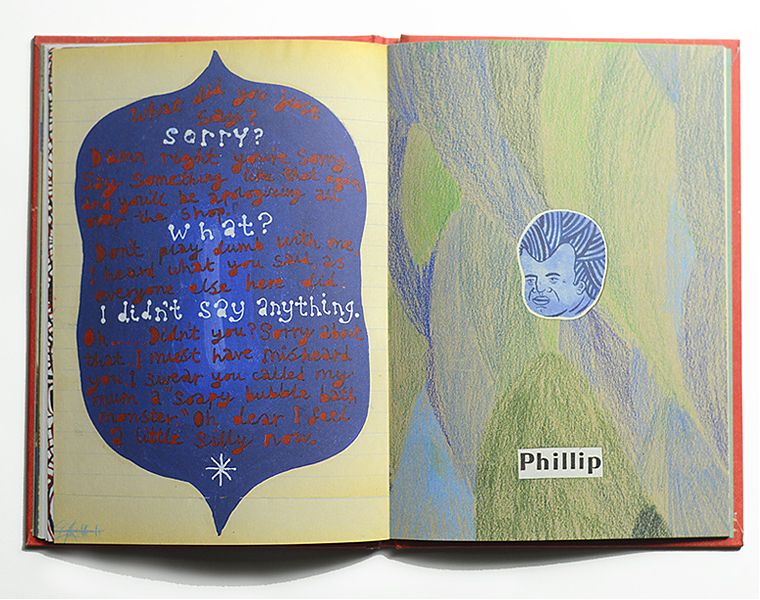 What did you just
say?
sorry?
Damn right you're sorry.
Say something like that again
and you'll be apologising all
over the shop."
What?
Don't play dumb with me,
I heard what you said as
everyone else here did.
I didn't say anything.
Oh..... Didn't you? Sorry about
that I must have misheard
you. I swear you called my
mum a soapy bubble bath
monster." Oh dear I feel
a little silly now.
Phillip